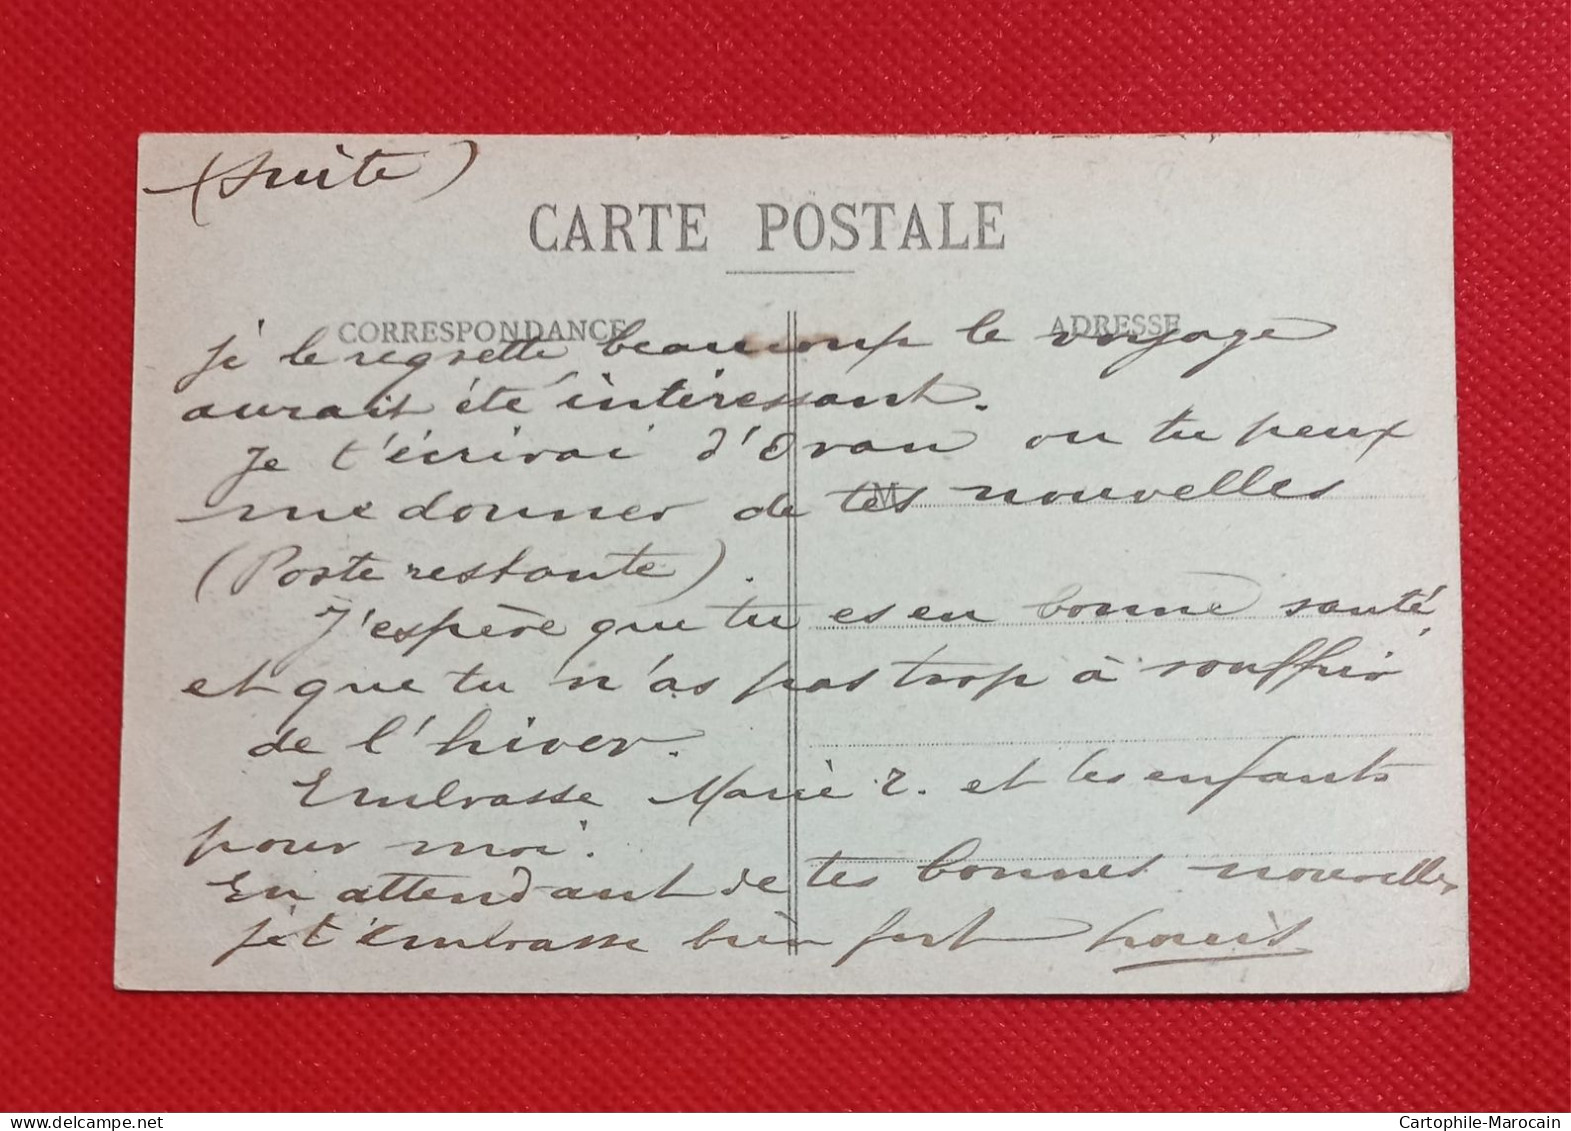 (Suite)
CARTE POSTALE
CORRESPONDANCE
ADRESSE
je le regrette beaucoup le voyage
aurait été intéressant.
Je t'écrirai d'Oran ou tu peux
me donner de tes nouvelles
M
(Poste restante).
J'espère que tu es en bonne santé,
et que tu n'as pas trop à souffrir
de l'hiver.
Embrasse Marie R. et les enfants
pour moi.
En attendant de tes bonnes nouvelles
je t'embrasse bien fort Louis
Cartophile-Marocain